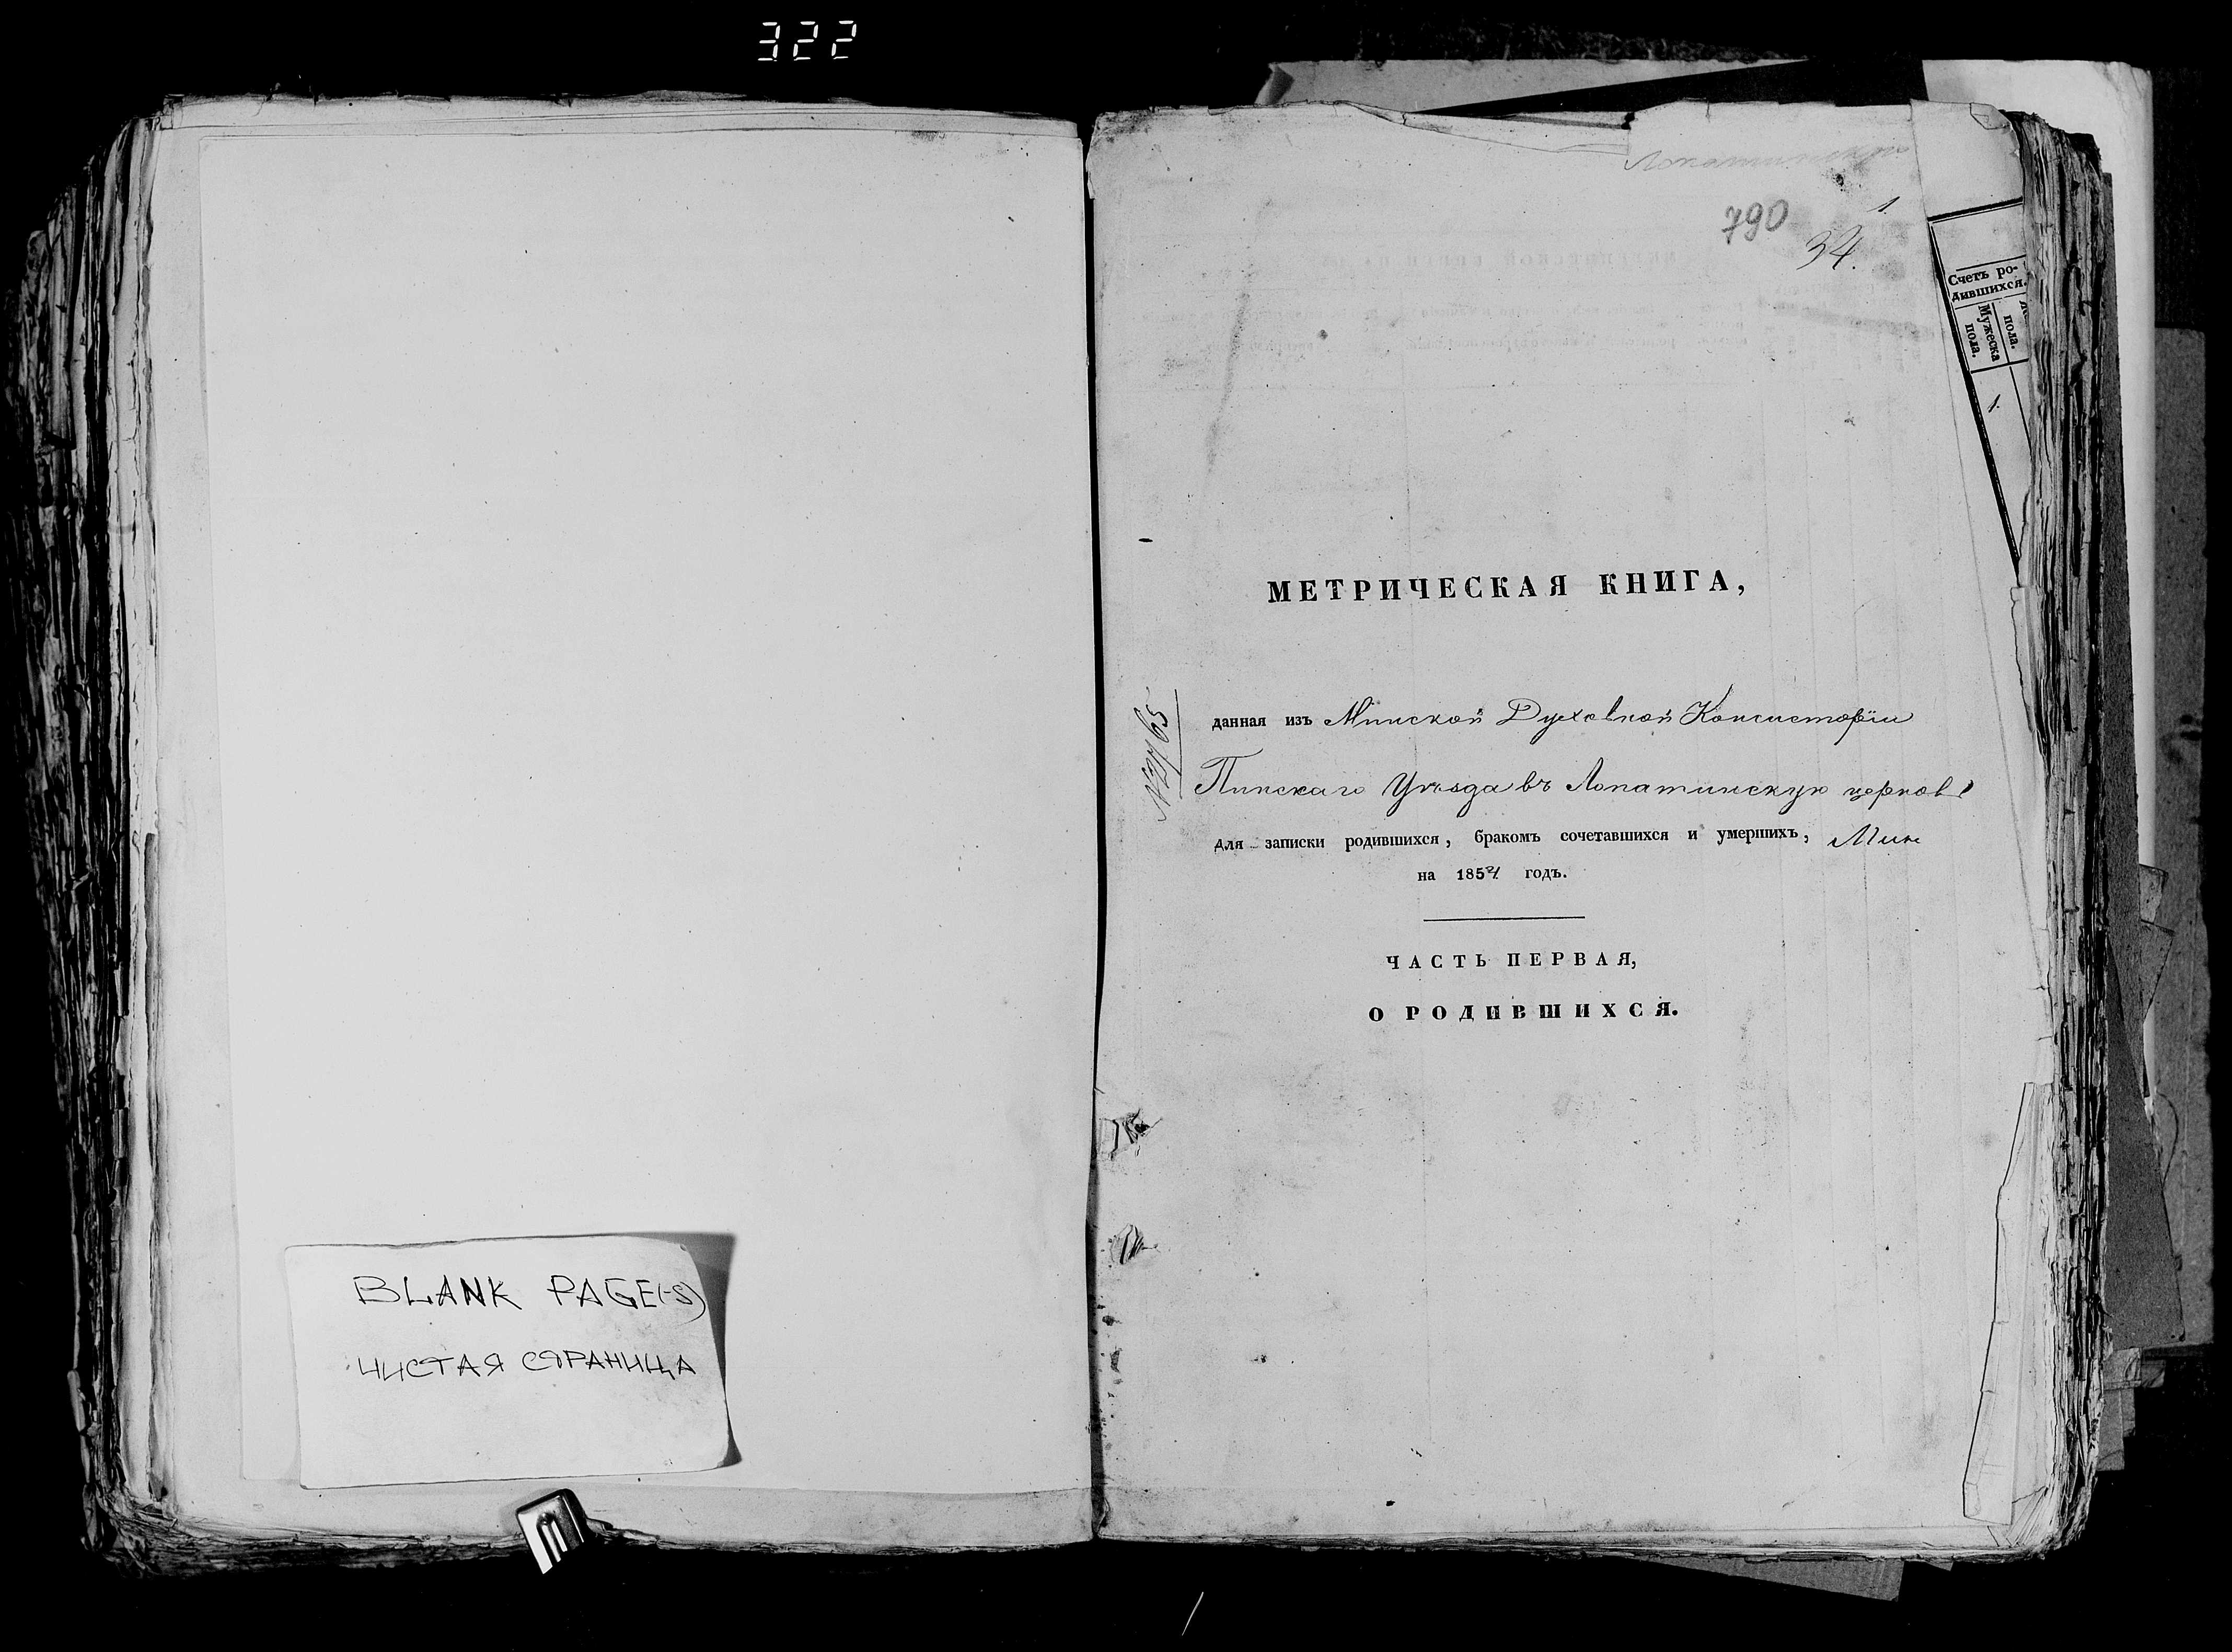 322
BLANK PAGE(-S)
ЧИСТАЯ СТРАНИЦА
Лопатинской
1.
790
34.
Счетъ ро-
дившихся.
Мужеска
пола.
пола.
1.
МЕТРИЧЕСКАЯ КНИГА,
данная изъ Минской Духовной Консисторіи
Пинскаго Уѣзда въ Лопатинскую церковь
для записки родившихся, бракомъ сочетавшихся и умершихъ, Мин
на 1854 годъ.
ЧАСТЬ ПЕРВАЯ,
О РОДИВШИХСЯ.